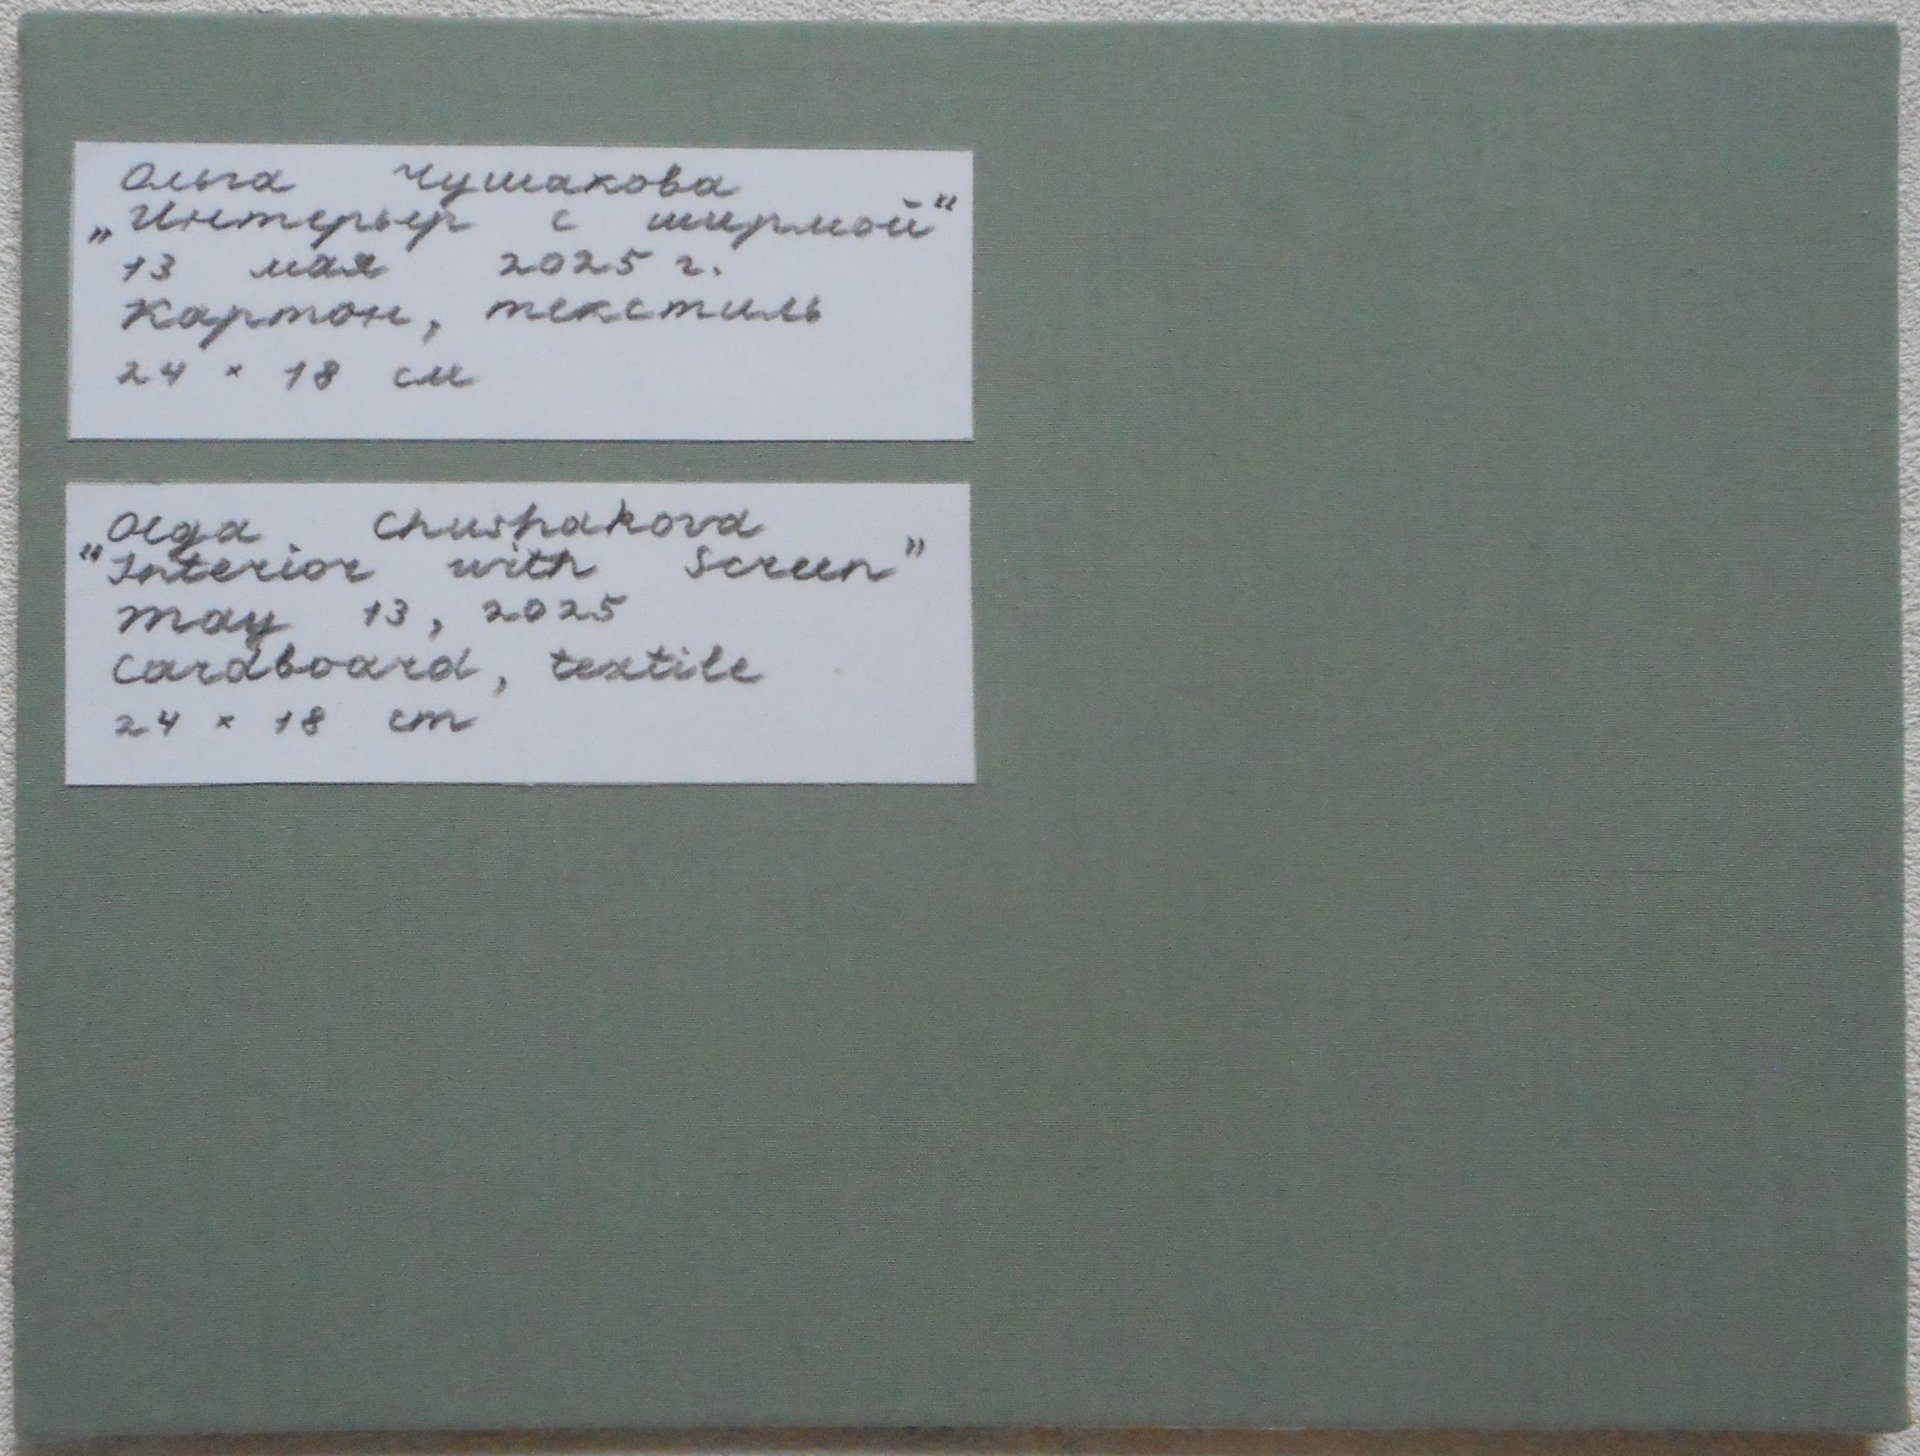 Ольга Чушакова
„Интерьер с ширмой“
13 мая 2025 г.
Картон, текстиль
24 × 18 см
Olga Chushakova
“Interior with Screen”
may 13, 2025
Cardboard, textile
24 × 18 cm